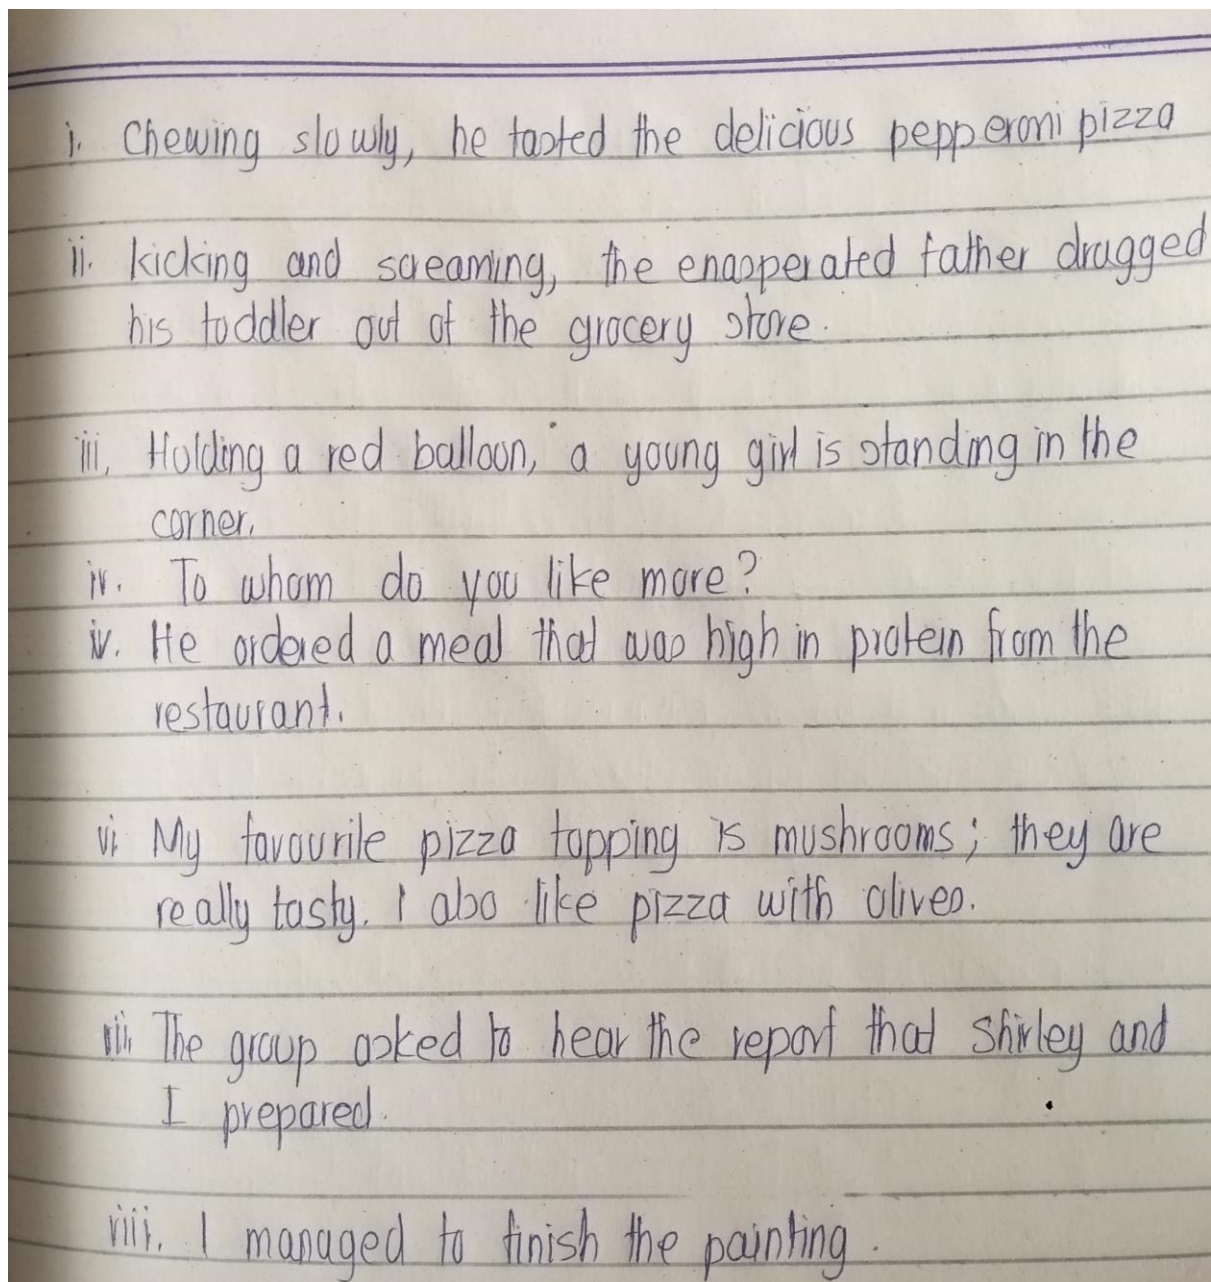 i. Chewing slowly, he tasted the delicious pepperoni pizza
ii. kicking and screaming, the enasperated father dragged
his toddler out of the grocery store.
iii, Holding a red balloon, a young girl is standing in the
corner.
iv. To whom do you like more?
iv. He ordered a meal that was high in protein from the
restaurant.
vi. My favourite pizza topping is mushrooms; they are
really tasty. I also like pizza with olives.
vii, The group asked to hear the report that Shirley and
I prepared.
viii. I managed to finish the painting.